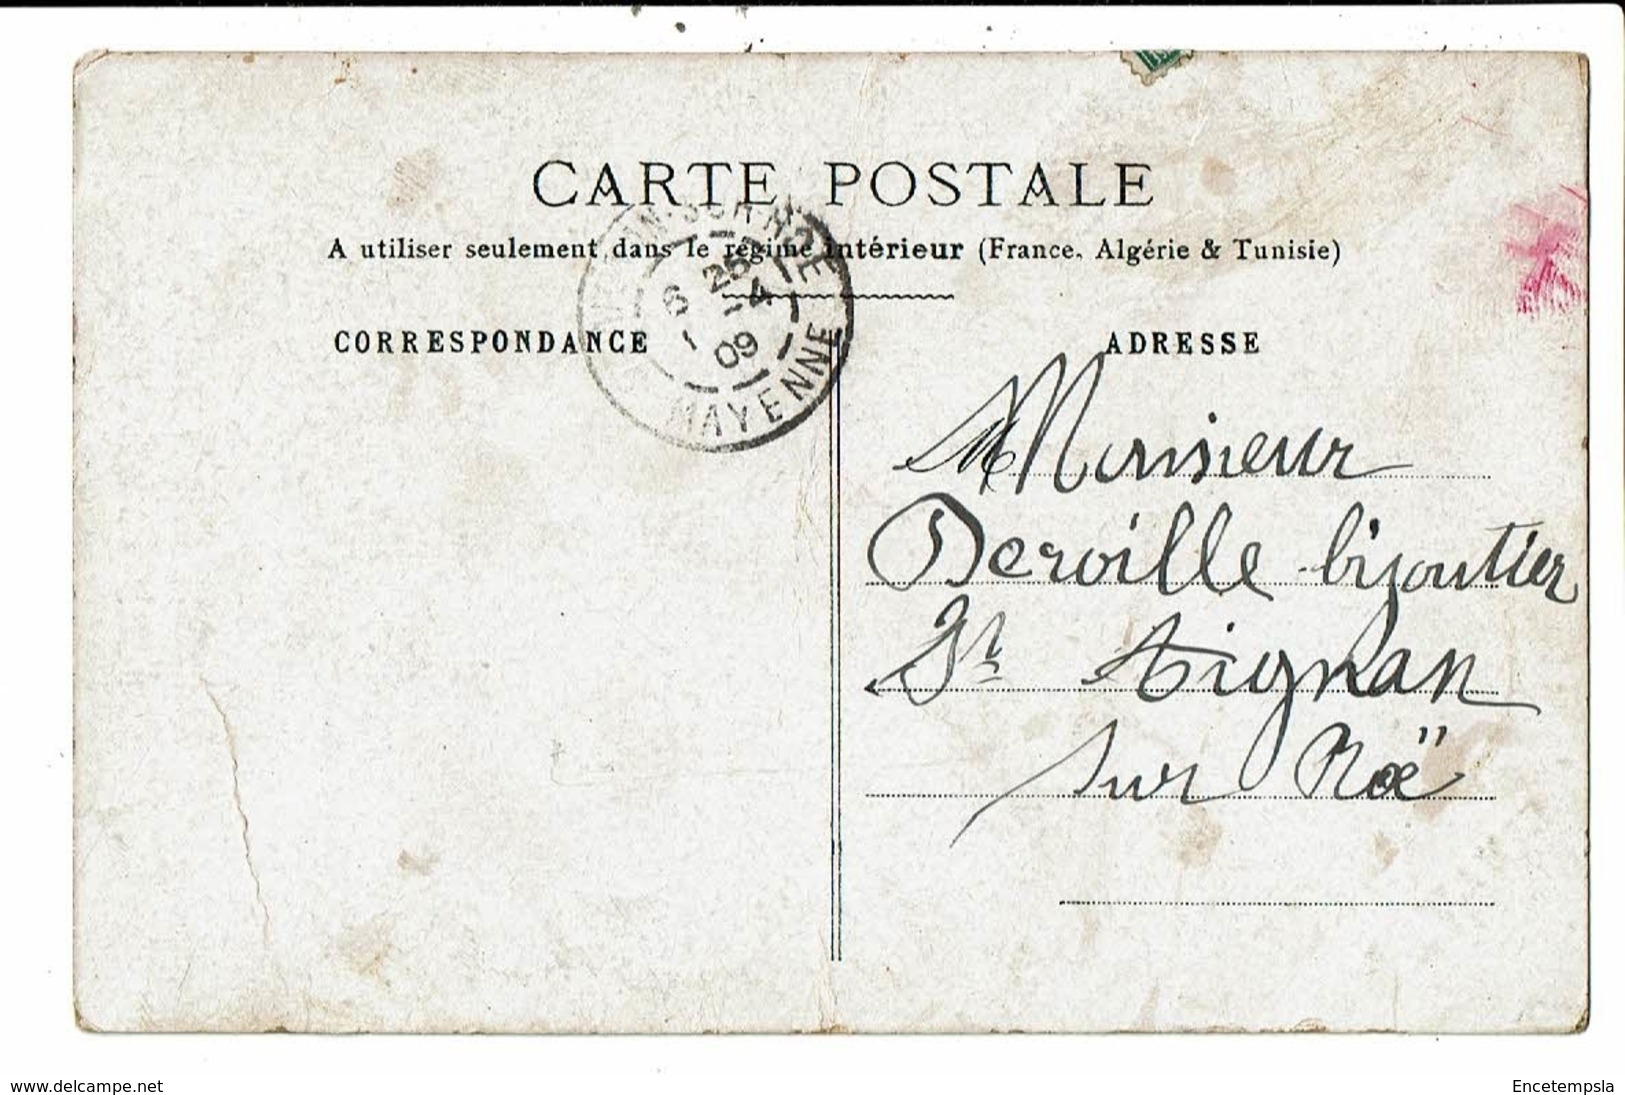 CARTE POSTALE
A utiliser seulement dans le régime intérieur (France, Algérie & Tunisie)
CORRESPONDANCE
ADRESSE
26
6 4
09
MAYENNE
Monsieur
Derville bijoutier
St Aignan
sur Roë
www.delcampe.net
Encetempsla